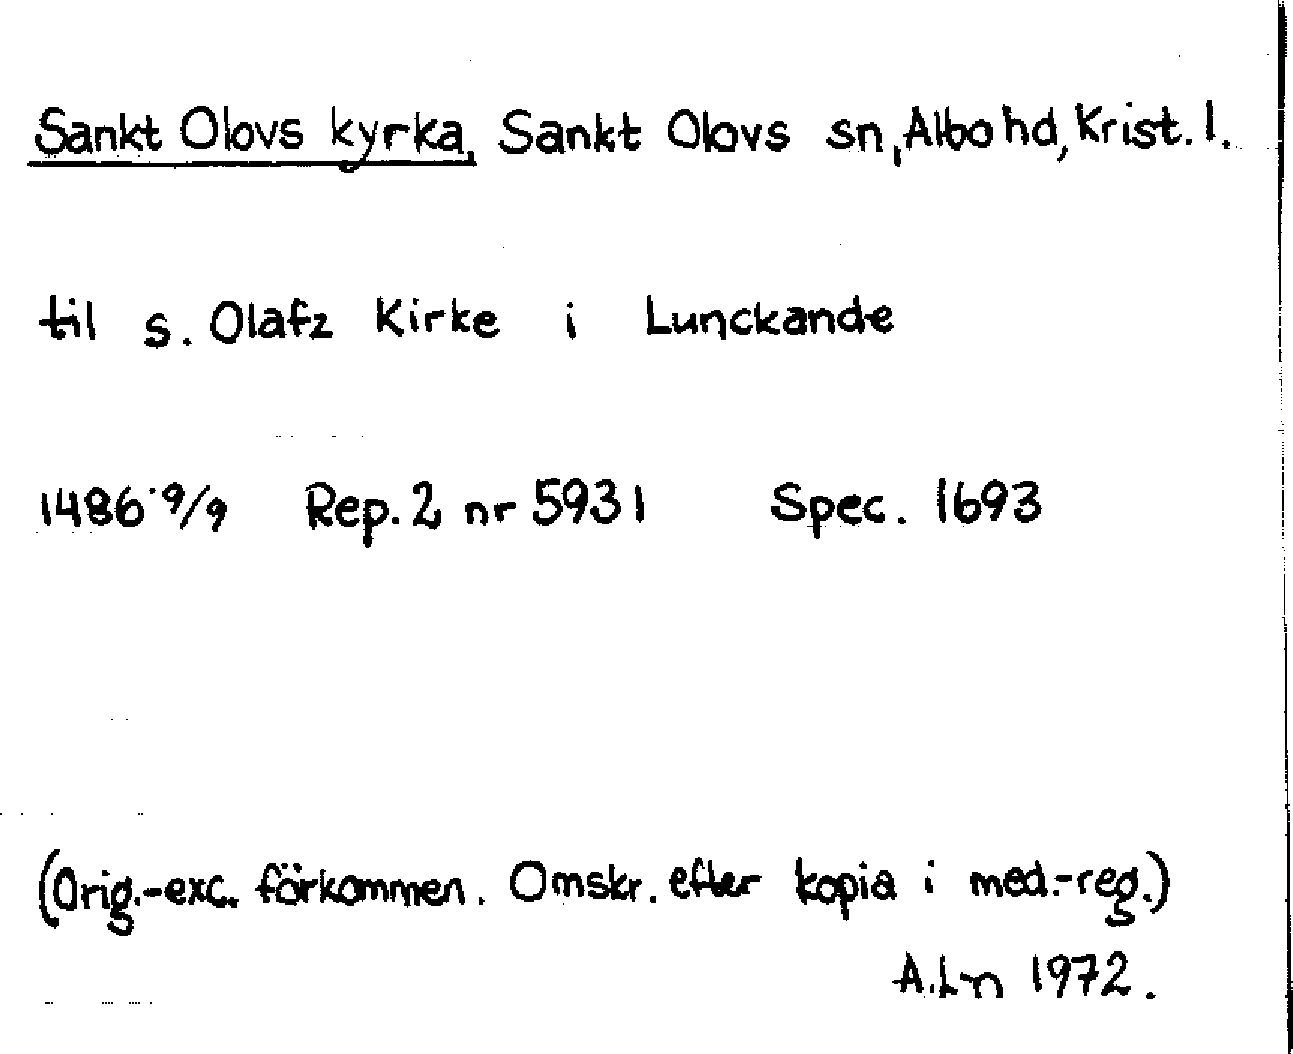 Sankt Olovs kyrka, Sankt Olovs sn, Albo hd, Krist. l.
til s. Olafz Kirke i Lunckande
1486 9/9 Rep. 2 nr 5931 Spec. 1693
(Orig.-exc. förkommen. Omskr. efter kopia i med.-reg.)
A.Ln 1972.